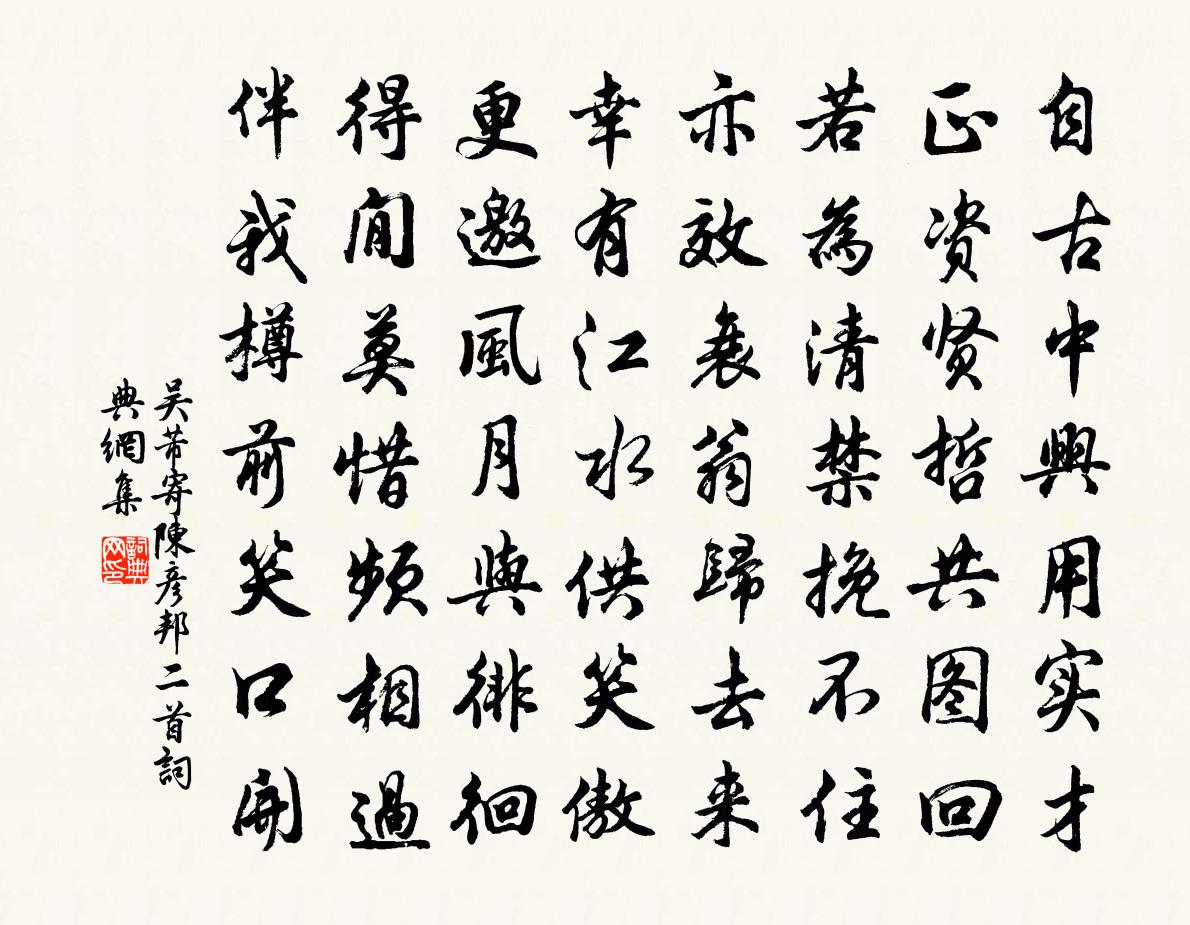 自古中興用实才
正资贤哲共图回
若為清禁挽不住
亦效衰翁歸去来
幸有江水供笑傲
更邀風月與徘徊
得閒莫惜頻相過
伴我樽前笑口開
吴芾寄陳彦邦二首詞
典網集
詞典
网印